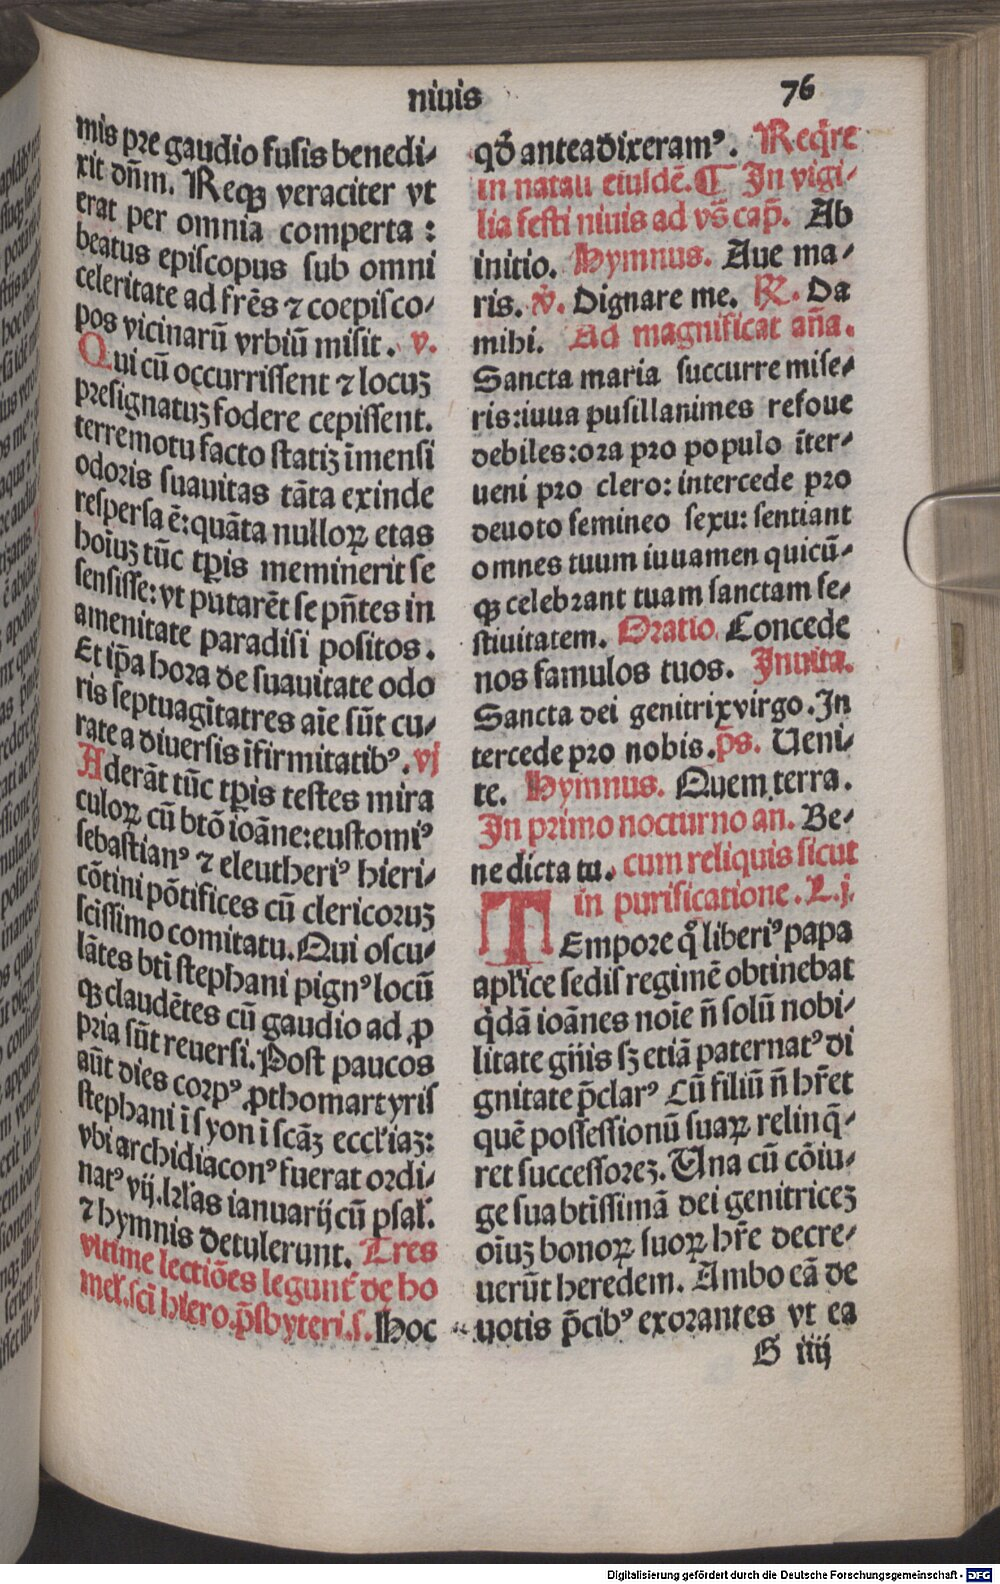 niuis
76
mis pre gaudio fusis benedi-
xit dn̄m. Reqꝫ veraciter vt
erat per omnia comperta :
beatus episcopus sub omni
celeritate ad fr̄es ⁊ coepisco-
pos vicinarū vrbiū misit. v.
Qui cū occurrissent ⁊ locuꝫ
presignatuꝫ fodere cepissent.
terremotu facto statiꝫ īmensi
odoris suauitas tāta exinde
respersa ē: quāta nulloꝝ etas
hoīuꝫ tūc tp̄is meminerit se
sensisse: vt putarēt se pn̄tes in
amenitate paradisi positos.
Et ip̄a hora de suauitate odo
ris septuagītatres aīe sūt cu-
rate a diuersis īfirmitatibꝰ. vj
Aderāt tūc tp̄is testes mira
culoꝝ cū btō ioāne: eustomiꝰ
sebastianꝰ ⁊ eleutheriꝰ hieri-
cōtini pōtifices cū clericoruꝫ
scissimo comitatu. Qui oscu-
lātes bt̄i stephani pignꝰ locū
qꝫ claudētes cū gaudio ad ꝓ
pria sūt reuersi. Post paucos
aūt dies corpꝰ ꝓthomartyris
stephani ī syon ī scāꝫ eccl'iaꝫ:
vbi archidiaconꝰ fuerat ordi-
natꝰ vij. kl'as ianuarij cū psal'.
⁊ hymnis detulerunt. Tres
vltime lectiōes legunt' de ho
mel'. sc̄i hiero. p̄sbyteri. s. Hoc
qd̄ antea dixeramꝰ. Req̄re
in natali eiusdē. ¶ In vigi-
lia festi niuis ad vs̄ cap̄. Ab
initio. Hymnus. Aue ma-
ris. v̄. Dignare me. ℟. Da
mihi. Ad magnificat an̄a.
Sancta maria succurre mise-
ris: iuua pusillanimes refoue
debiles: ora pro populo īter-
ueni pro clero: intercede pro
deuoto femineo sexu: sentiant
omnes tuum iuuamen quicū-
qꝫ celebrant tuam sanctam fe-
stiuitatem. Oratio. Concede
nos famulos tuos. Inuita.
Sancta dei genitrix virgo. In
tercede pro nobis. p̄s. Ueni-
te. Hymnus. Quem terra.
In primo nocturno an. Be-
nedicta tu. cum reliquis sicut
in purificatione. L. j.
TEmpore q̄ liberiꝰ papa
apl'ice sedis regimē obtinebat
q̄dā ioānes noīe n̄ solū nobi-
litate gn̄is sꝫ etiā paternatꝰ di
gnitate p̄clarꝰ Cū filiū n̄ hr̄et
quē possessionū suaꝝ relinq̄-
ret successoreꝫ. Una cū cōiu-
ge sua btīssimā dei genitriceꝫ
oīuꝫ bonoꝝ suoꝝ hr̄e decre-
uerūt heredem. Ambo eā de
uotis p̄cibꝰ exorantes vt ea
G iiij
Digitalisierung gefördert durch die Deutsche Forschungsgemeinschaft - DFG